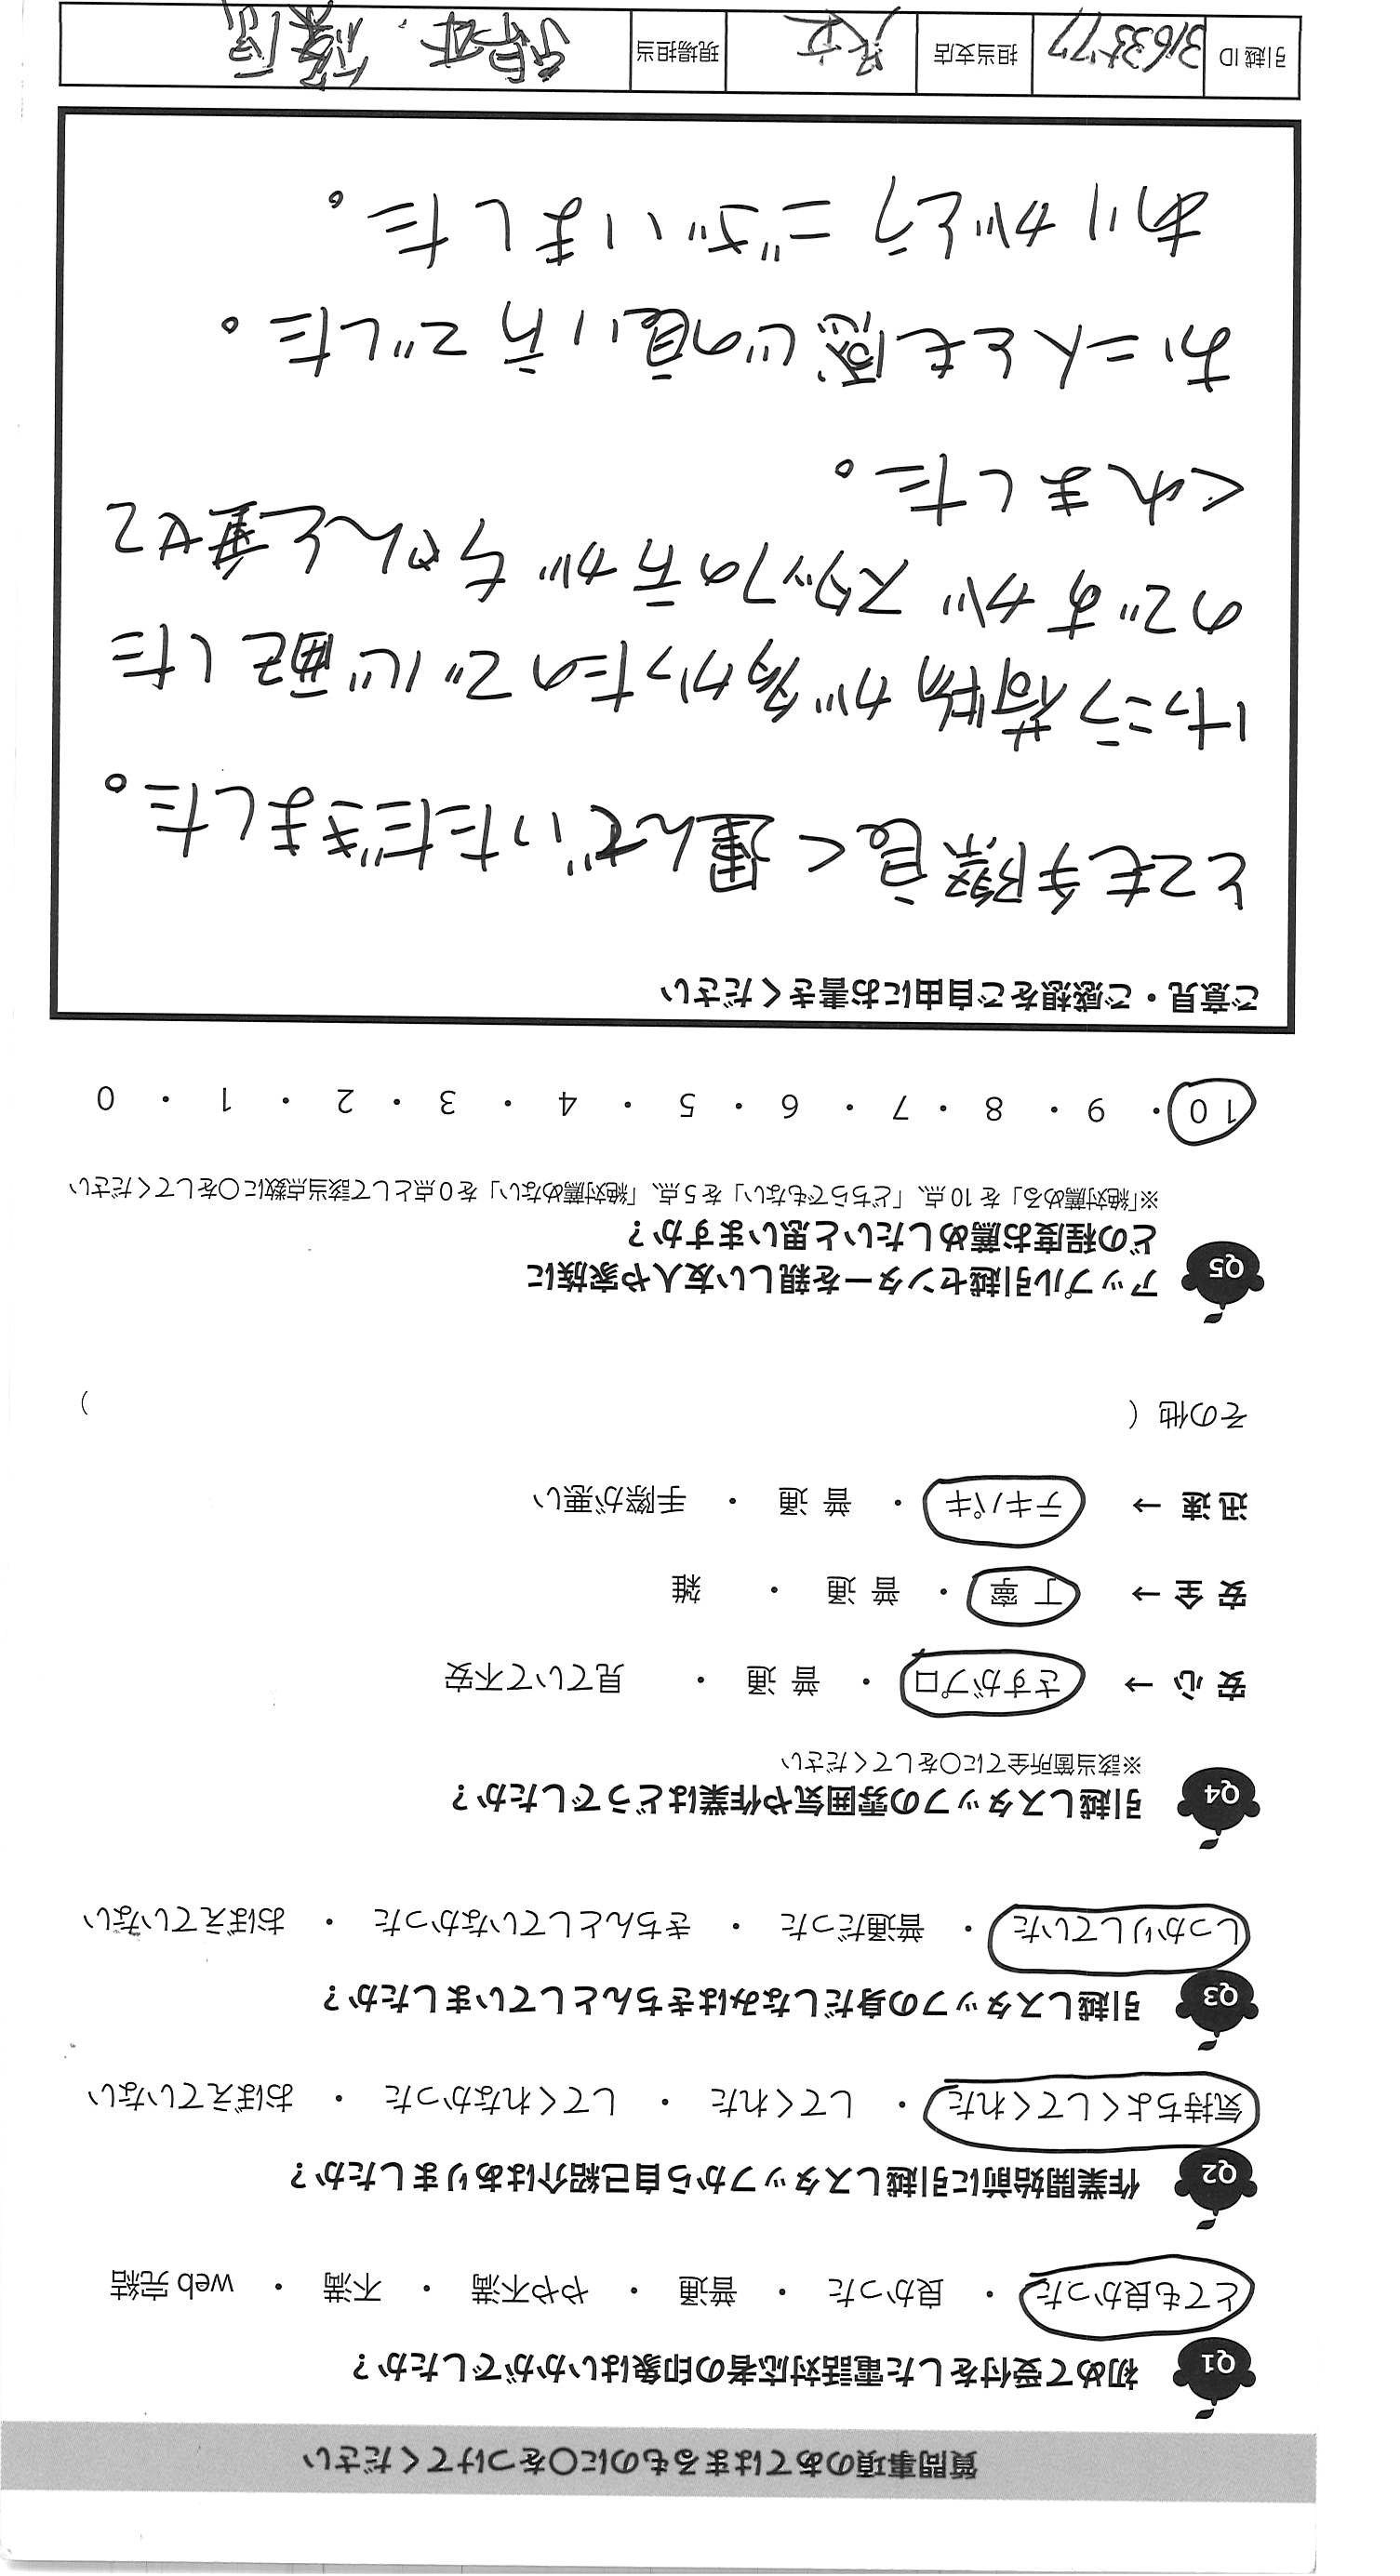 質問事項のあてはまるものに〇をつけてください
Q1 初めて受付をした電話対応者の印象はいかがでしたか？
とても良かった ・ 良かった ・ 普通 ・ やや不満 ・ 不満 ・ web 完結
Q2 作業開始前に引越しスタッフから自己紹介はありましたか？
気持ちよくしてくれた ・ してくれた ・ してくれなかった ・ おぼえていない
Q3 引越しスタッフの身だしなみはきちんとしていましたか？
しっかりしていた ・ 普通だった ・ きちんとしていなかった ・ おぼえていない
Q4 引越しスタッフの雰囲気や作業はどうでしたか？
※該当箇所全てに〇をしてください
安 心 → さすがプロ ・ 普 通 ・ 見ていて不安
安 全 → 丁 寧 ・ 普 通 ・ 雑
迅 速 → テキパキ ・ 普 通 ・ 手際が悪い
その他（ ）
Q5 アップル引越センターを親しい友人や家族に
どの程度お薦めしたいと思いますか？
※「絶対薦める」を 10 点、「どちらでもない」を 5 点、「絶対薦めない」を 0 点として該当点数に〇をしてください
10 ・ 9 ・ 8 ・ 7 ・ 6 ・ 5 ・ 4 ・ 3 ・ 2 ・ 1 ・ 0
ご意見・ご感想をご自由にお書きください
とても手際良く運んでいただきました。
けっこう荷物が多かったので心配した
のですがスタッフの方がちゃんと乗せて
くれました。
お二人とも感じの良い方でした。
ありがとうございました。
引越 ID 担当支店 足立 現場担当